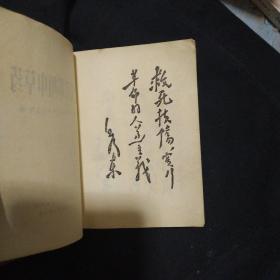 救死扶伤，实行
革命的人道主义
毛泽东
中草药